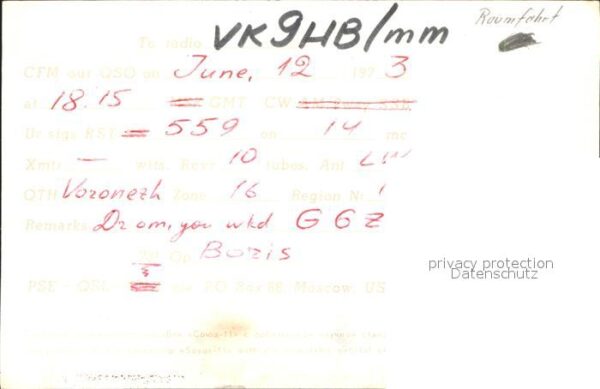 Raumfahrt
To radio VK9HB/mm
CFM our QSO on June, 12 1973
at 18.15 GMT CW AM
Ur sigs RST 559 on 14 mc
Xmtr — wtts. Rcvr 10 tubes. Ant LW
QTH Voronezh Zone 16 Region Nr
Remarks Dr om, you wkd GGZ
73 Op Boris
PSE - QSL - via PO Box 88, Moscow, US
privacy protection
Datenschutz